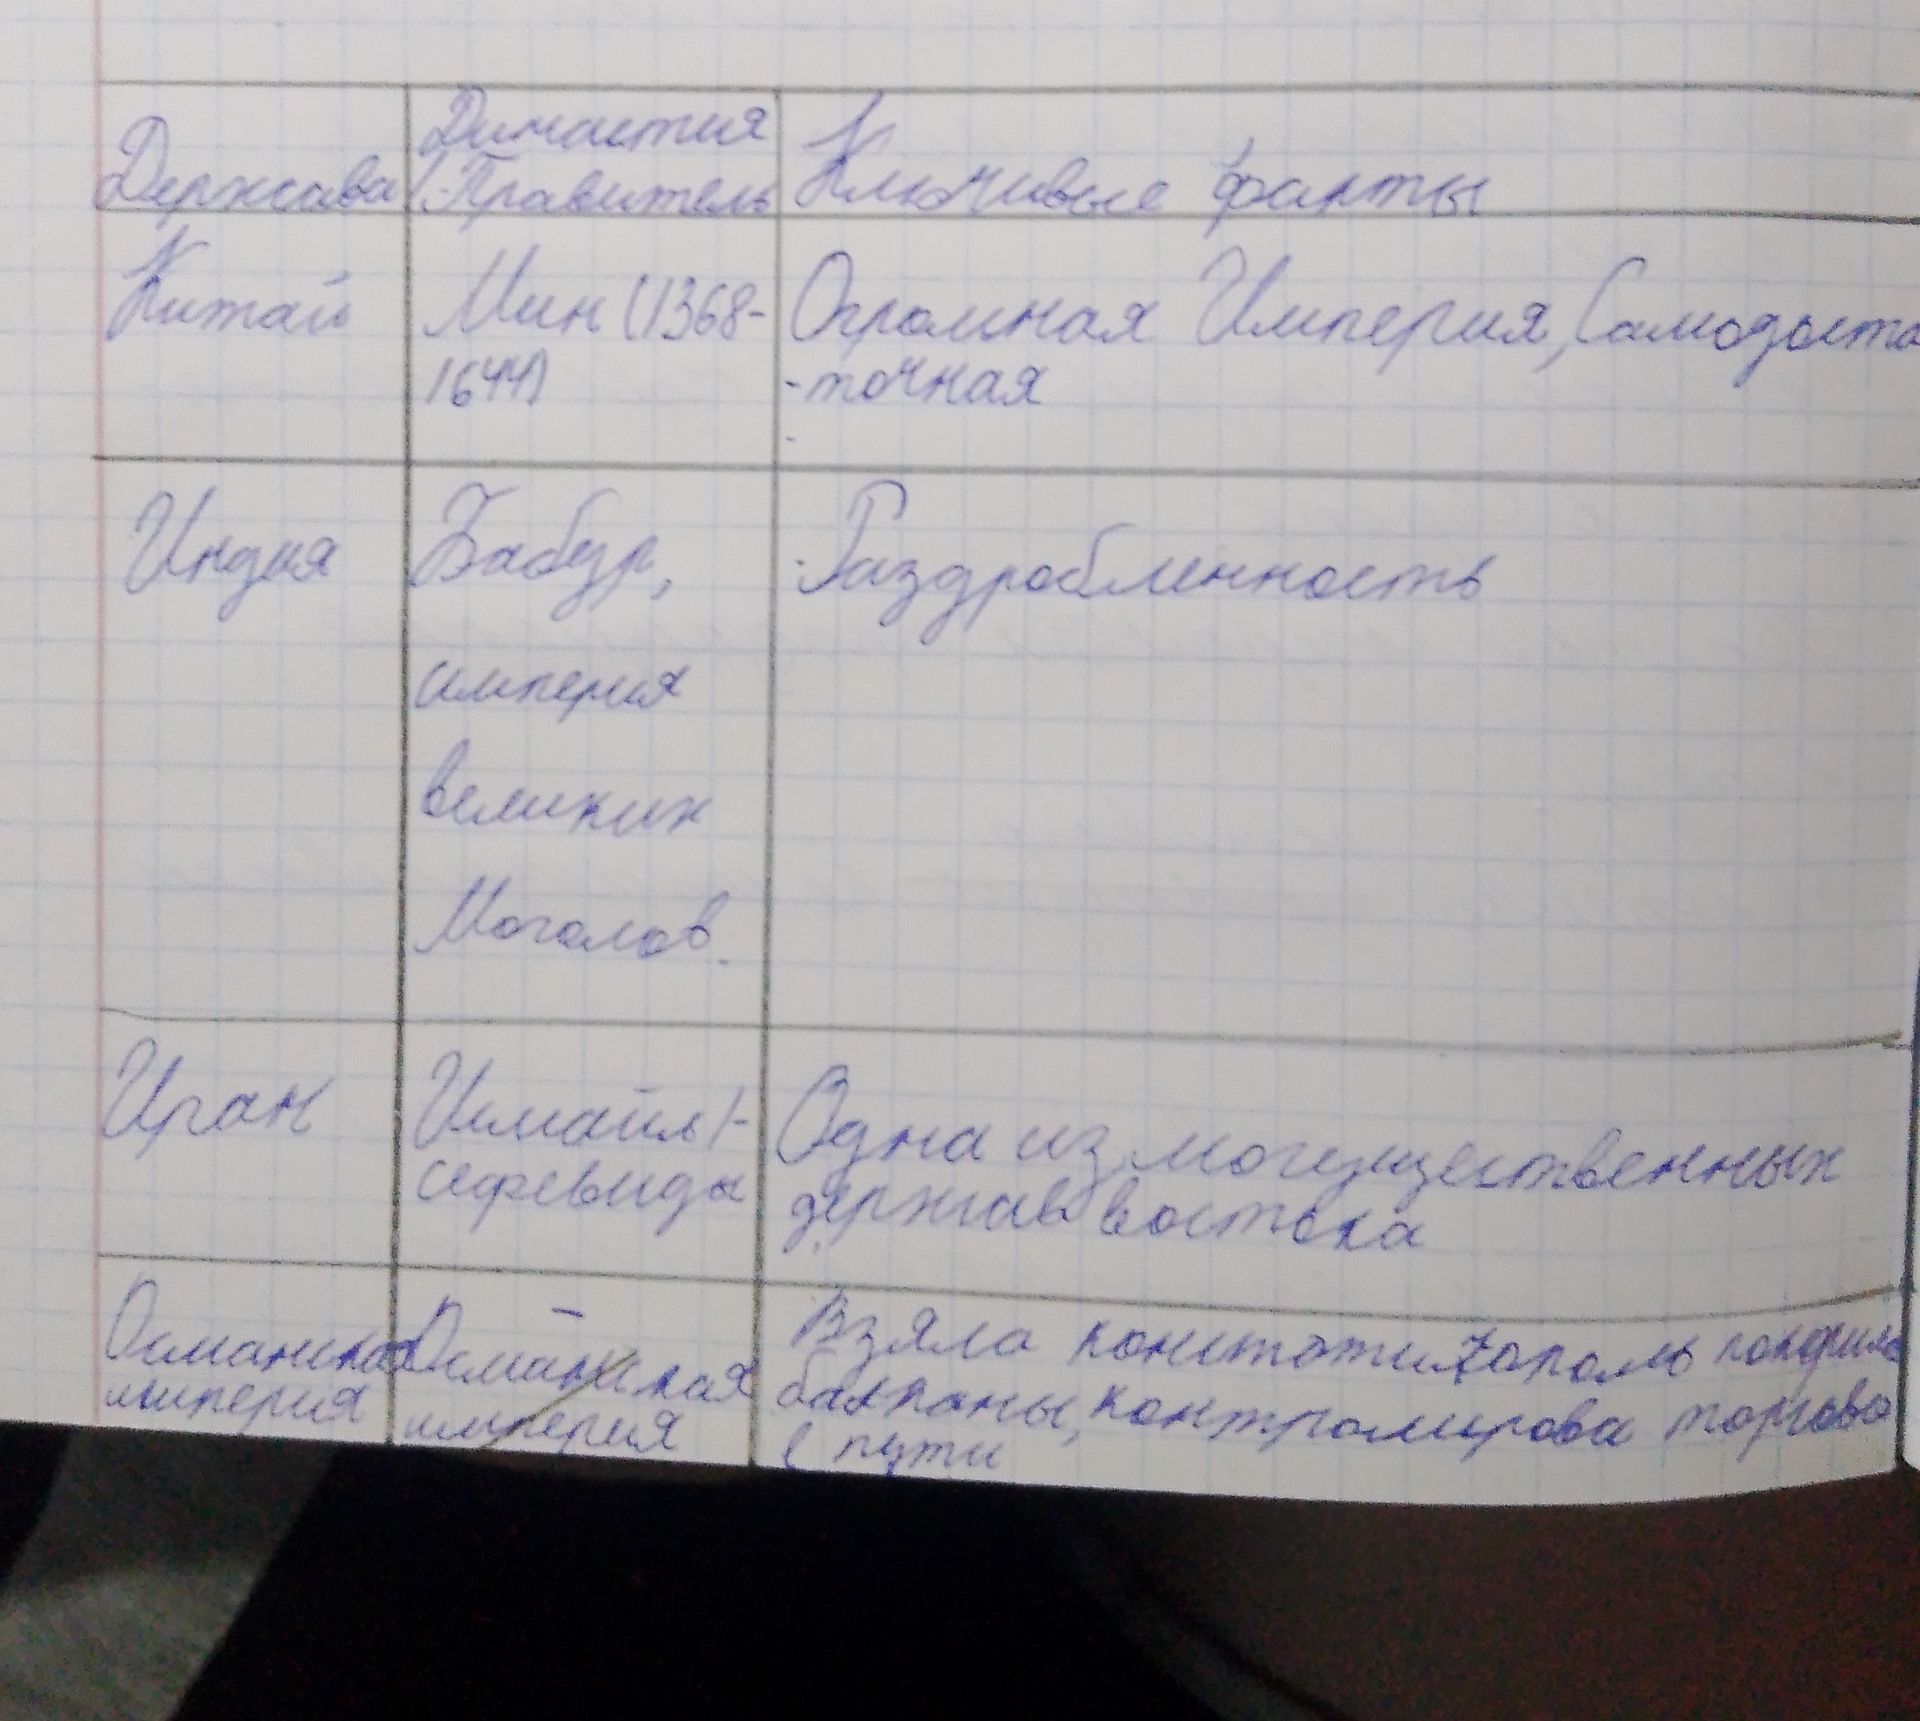 Держава
Династия
/.Правитель
Ключивые факты
Китай
Мин (1368-
1644)
Огромная Империя, Самодоста
-точная
Индия
Бабур,
империя
великих
Моголов.
.Раздробленность
Иран
Исмаил I-
сефевиды
Одна из могущественных
держав востока
Османская
империя
Османская
империя
Взяла
балканы, контролирова торгова
е пути